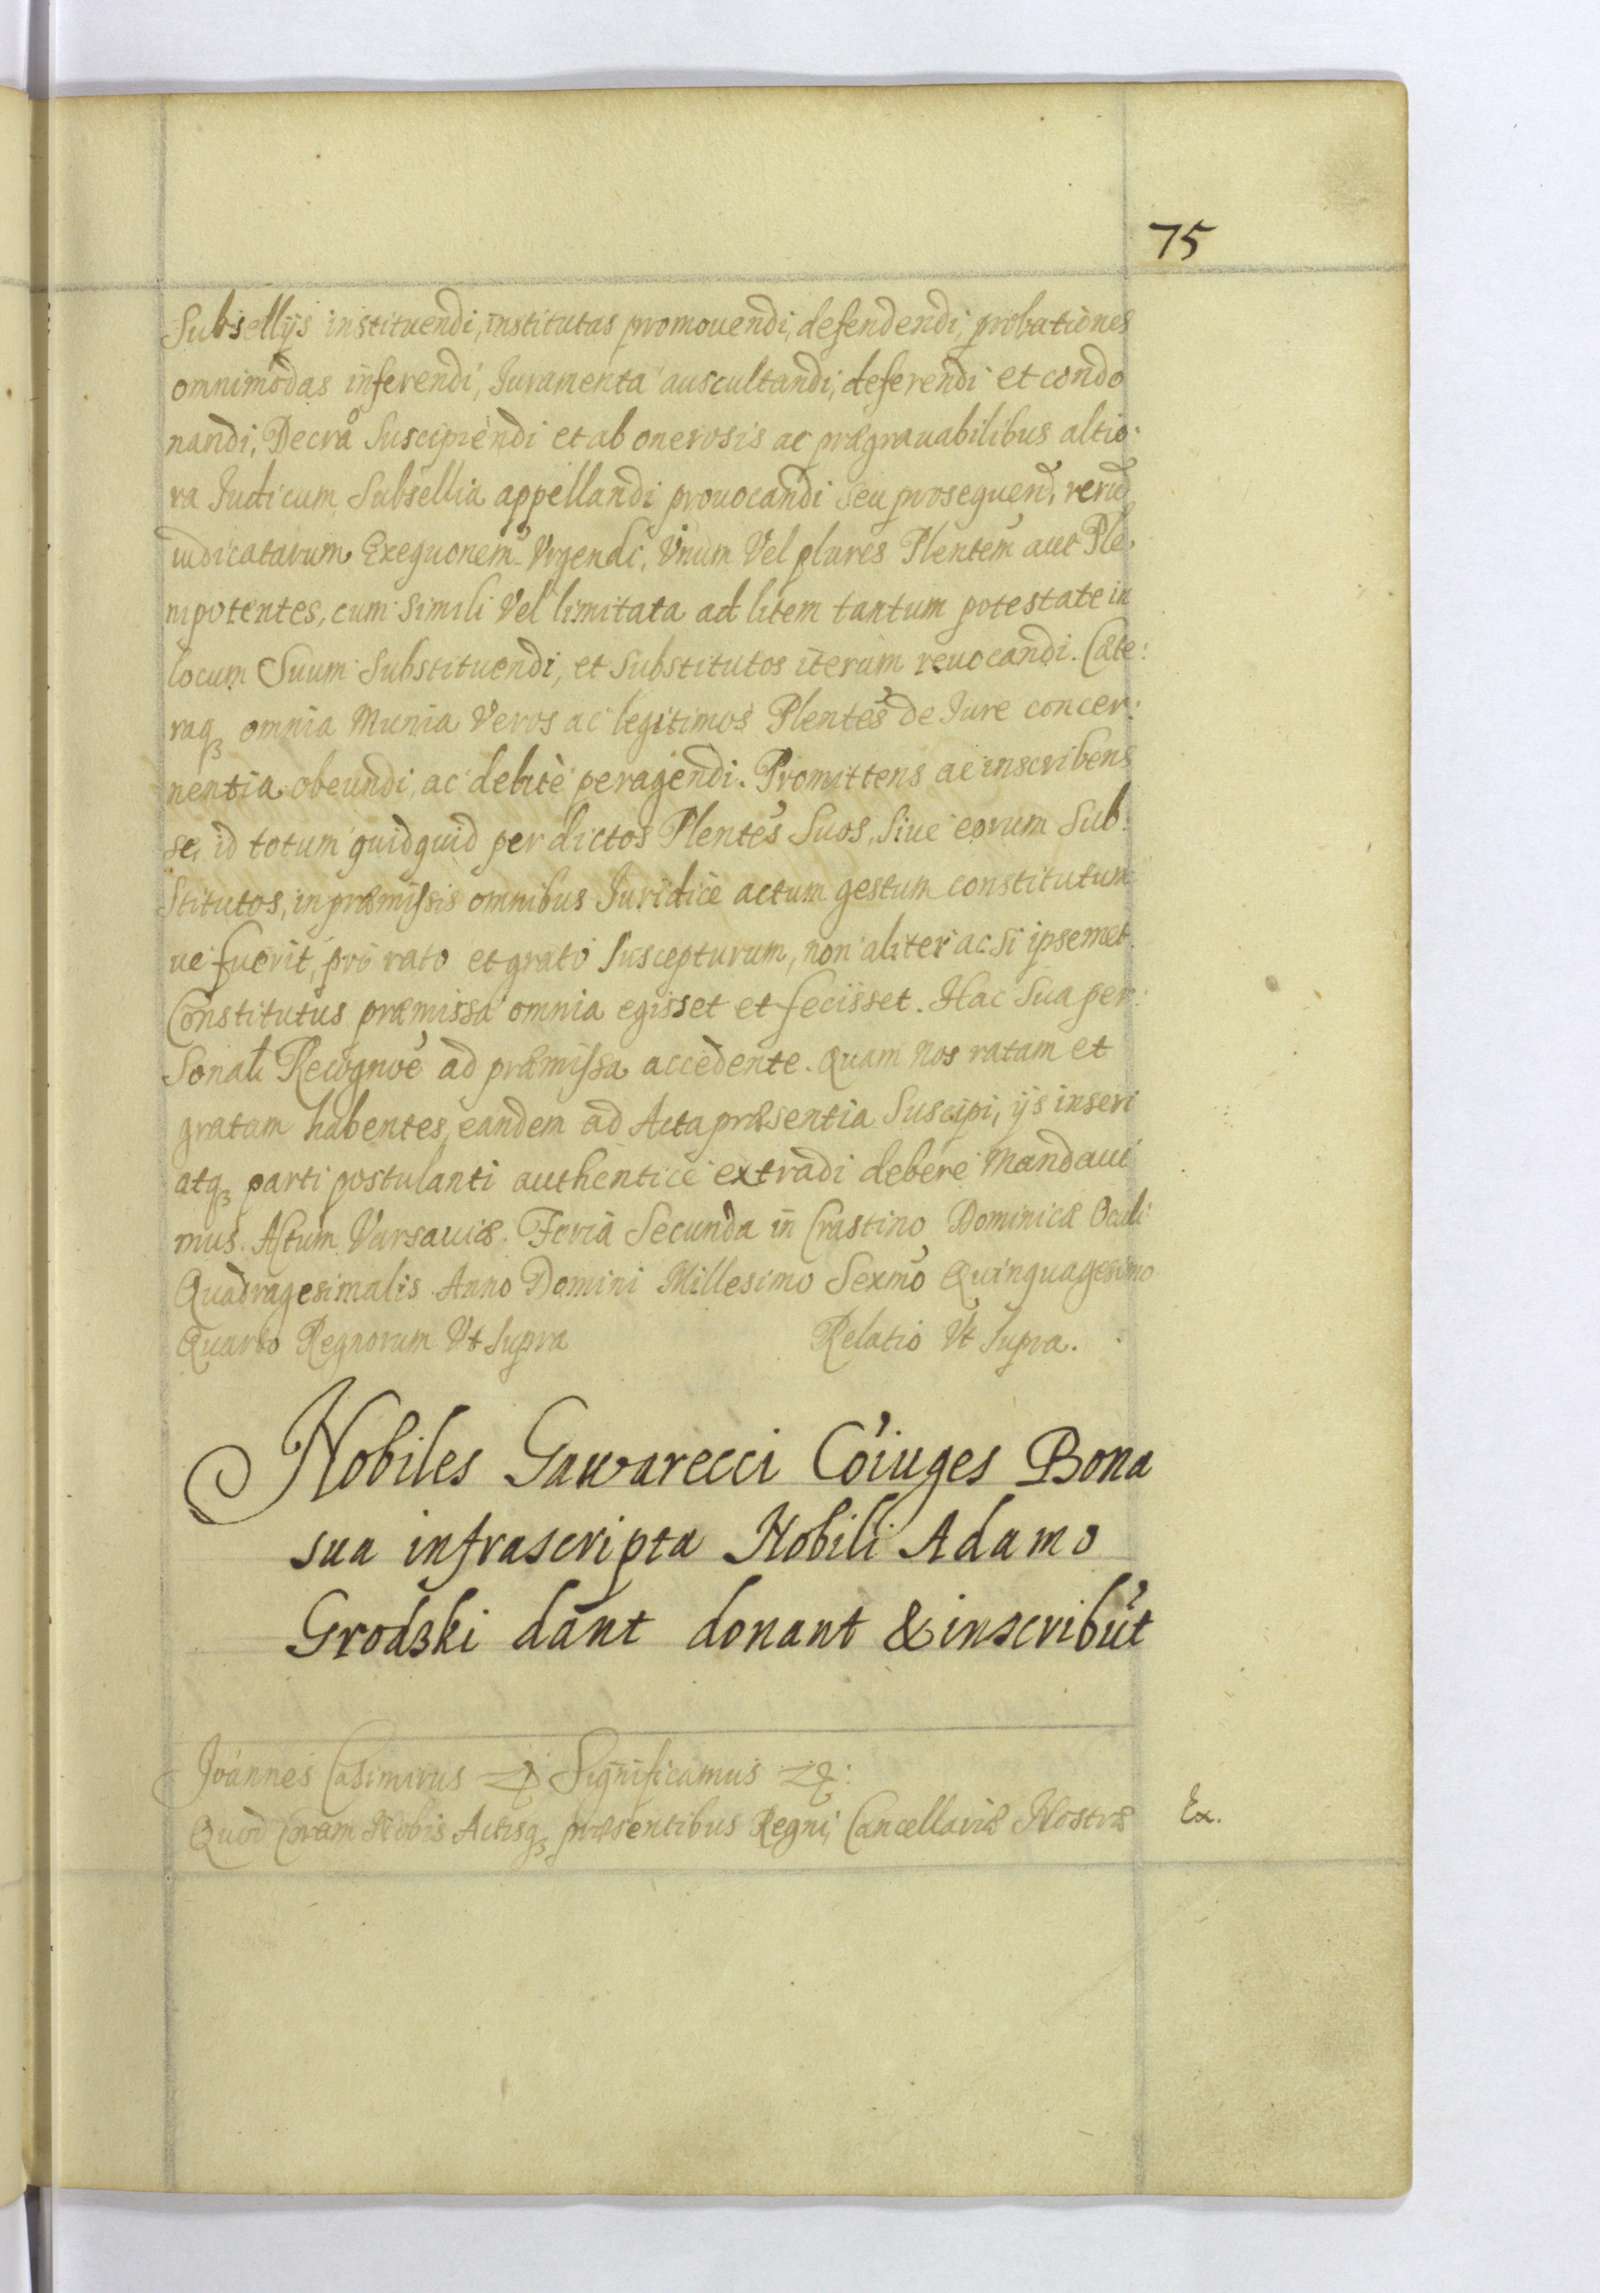 75
Subsellijs instituendi, institutas promouendi, defendendi, probationes
omnimodas inferendi, Iuramenta auscultandi, deferendi et condo
nandi, Decra Suscipiendi et ab onerosis ac prægrauabilibus altio:
ra Iudicum Subsellia appellandi prouocandi seu prosequend, reru
iudicatarum Exequonem Vrgendi, Vnum Vel plures Plentem aut Ple,
nipotentes, cum Simili Vel limitata ad litem tantum potestate in
locum Suum Substituendi, et Substitutos iterum reuocandi. Cæte:
raq3 omnia Munia Veros ac legitimos Plentes de Iure concer:
nentia obeundi, ac debitè peragendi. Promittens ac inscribens
se, id totum quidquid per dictos Plentes Suos, Siue eorum Sub:
Stitutos, in præmissis omnibus Iuridicè actum gestum constitutum
ue fuerit, pro rato et grato Suscepturum, non aliter ac Si ipsemet
Constitutus præmissa omnia egisset et fecisset. Hac Sua per:
Sonali Recognoe ad præmissa accedente. Quam Nos ratam et
gratam habentes, eandem ad Acta præsentia Suscipi, ijs inseri
atq3 parti postulanti authenticè extradi debere Mandaui
mus. Actum Varsauiæ. Feria Secunda in Crastino Dominicæ Oculi
Quadragesimalis Anno Domini Millesimo Sexmo Quinquagesimo
Quarto Regnorum Vt Supra Relatio Vt Supra.
Nobiles Gawarecci Co'iuges Bona
sua infrascripta Nobili Adamo
Grodzki dant donant & inscribu't
Joannes Casimirus Significamus
Quod Coram Nobis Actisq3 præsentibus Regni Cancellariæ Nostræ Ex.